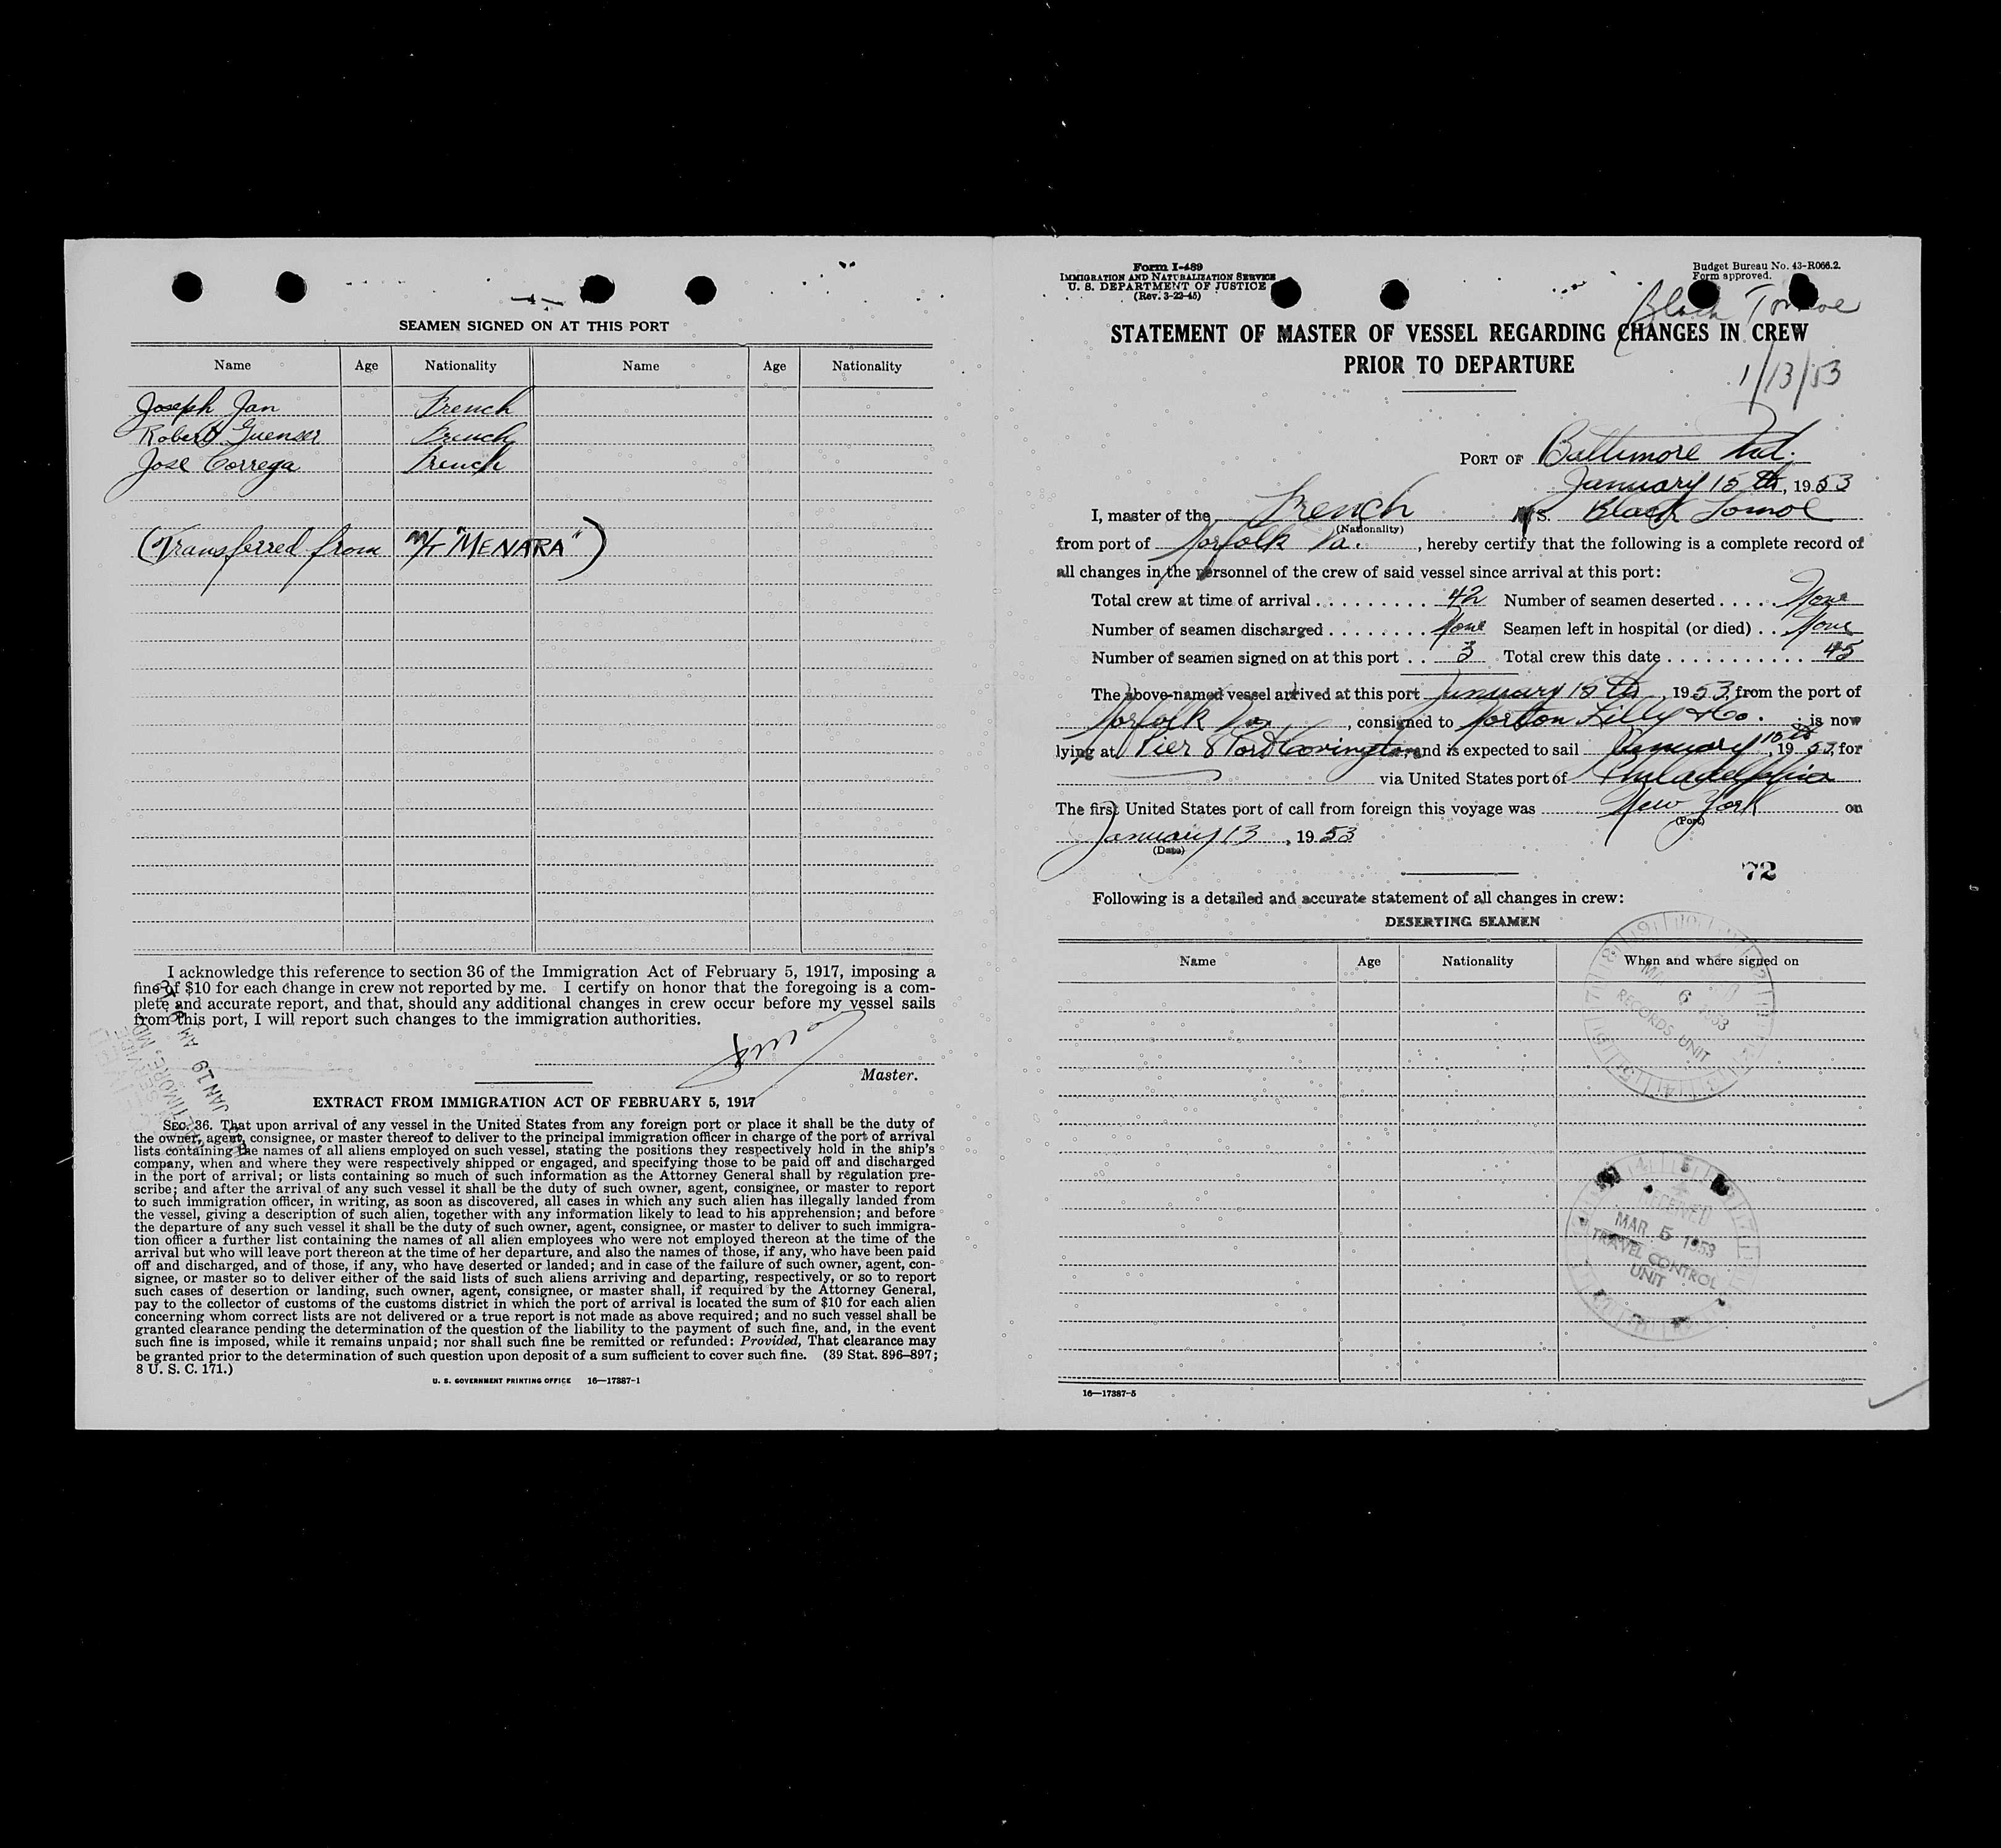 SEAMEN SIGNED ON AT THIS PORT
Name Age Nationality Name Age Nationality
Joseph Jan French
Robert Guenser French
Jose Correga French
(Transferred from M/T "MENARA")
I acknowledge this reference to section 36 of the Immigration Act of February 5, 1917, imposing a
fine of $10 for each change in crew not reported by me. I certify on honor that the foregoing is a com-
plete and accurate report, and that, should any additional changes in crew occur before my vessel sails
from this port, I will report such changes to the immigration authorities.
Master.
JAN 19
AM
EXTRACT FROM IMMIGRATION ACT OF FEBRUARY 5, 1917
SEC. 36. That upon arrival of any vessel in the United States from any foreign port or place it shall be the duty of
the owner, agent, consignee, or master thereof to deliver to the principal immigration officer in charge of the port of arrival
lists containing the names of all aliens employed on such vessel, stating the positions they respectively hold in the ship's
company, when and where they were respectively shipped or engaged, and specifying those to be paid off and discharged
in the port of arrival; or lists containing so much of such information as the Attorney General shall by regulation pre-
scribe; and after the arrival of any such vessel it shall be the duty of such owner, agent, consignee, or master to report
to such immigration officer, in writing, as soon as discovered, all cases in which any such alien has illegally landed from
the vessel, giving a description of such alien, together with any information likely to lead to his apprehension; and before
the departure of any such vessel it shall be the duty of such owner, agent, consignee, or master to deliver to such immigra-
tion officer a further list containing the names of all alien employees who were not employed thereon at the time of the
arrival but who will leave port thereon at the time of her departure, and also the names of those, if any, who have been paid
off and discharged, and of those, if any, who have deserted or landed; and in case of the failure of such owner, agent, con-
signee, or master so to deliver either of the said lists of such aliens arriving and departing, respectively, or so to report
such cases of desertion or landing, such owner, agent, consignee, or master shall, if required by the Attorney General,
pay to the collector of customs of the customs district in which the port of arrival is located the sum of $10 for each alien
concerning whom correct lists are not delivered or a true report is not made as above required; and no such vessel shall be
granted clearance pending the determination of the question of the liability to the payment of such fine, and, in the event
such fine is imposed, while it remains unpaid; nor shall such fine be remitted or refunded: Provided, That clearance may
be granted prior to the determination of such question upon deposit of a sum sufficient to cover such fine. (39 Stat. 896-897;
8 U. S. C. 171.)
U. S. GOVERNMENT PRINTING OFFICE 16—17387-1
Form I-489
IMMIGRATION AND NATURALIZATION SERVICE
U. S. DEPARTMENT OF JUSTICE
(Rev. 3-22-45)
Budget Bureau No. 43-R066.2.
Form approved.
Black Tomoe
STATEMENT OF MASTER OF VESSEL REGARDING CHANGES IN CREW
PRIOR TO DEPARTURE
1/13/53
PORT OF Baltimore Md.
January 15th, 1953
I, master of the French S. Black Tomoe
(Nationality)
from port of Norfolk Va., hereby certify that the following is a complete record of
all changes in the personnel of the crew of said vessel since arrival at this port:
Total crew at time of arrival 42 Number of seamen deserted None
Number of seamen discharged None Seamen left in hospital (or died) None
Number of seamen signed on at this port 3 Total crew this date 45
The above-named vessel arrived at this port January 15th, 1953, from the port of
Norfolk Va., consigned to Norton Lilly & Co. ; is now
lying at Pier 8 Port Covington, and is expected to sail January 15th, 1953, for
via United States port of Philadelphia
The first United States port of call from foreign this voyage was New York on
(Port)
January 13, 1953
(Date)
72
Following is a detailed and accurate statement of all changes in crew:
DESERTING SEAMEN
Name Age Nationality When and where signed on
6 1953
RECORDS UNIT
RECEIVED
MAR 5 1953
TRAVEL CONTROL
UNIT
16—17387-5